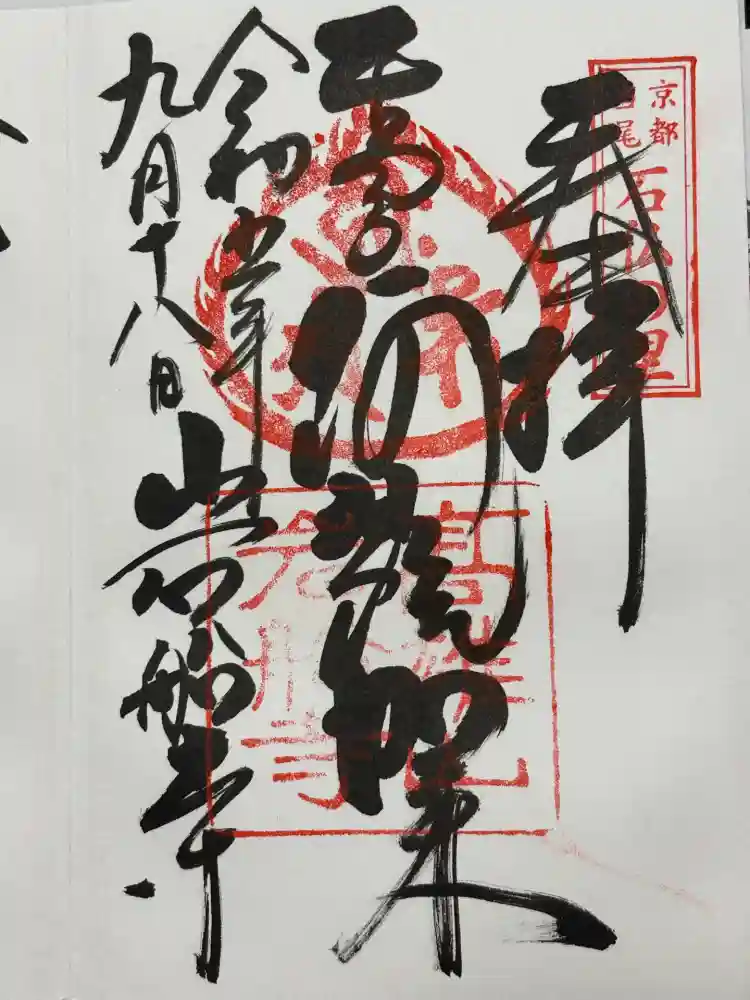 京都
当尾
石仏の里
奉拝
阿弥陀如来
令和
年
九月十八日
岩船寺
高雄山
岩船寺